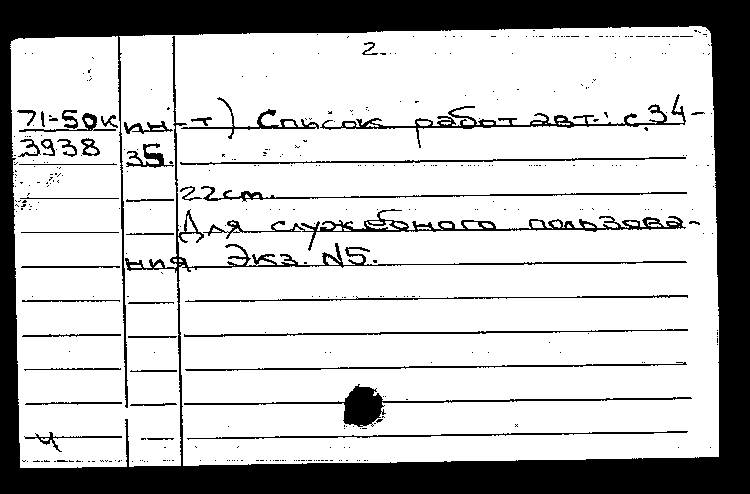 2.
71-50к ин-т) Список работ авт.: с.34-
3938 35.
22cm.
Для служебного пользова-
ния. Экз. N5.
Ч